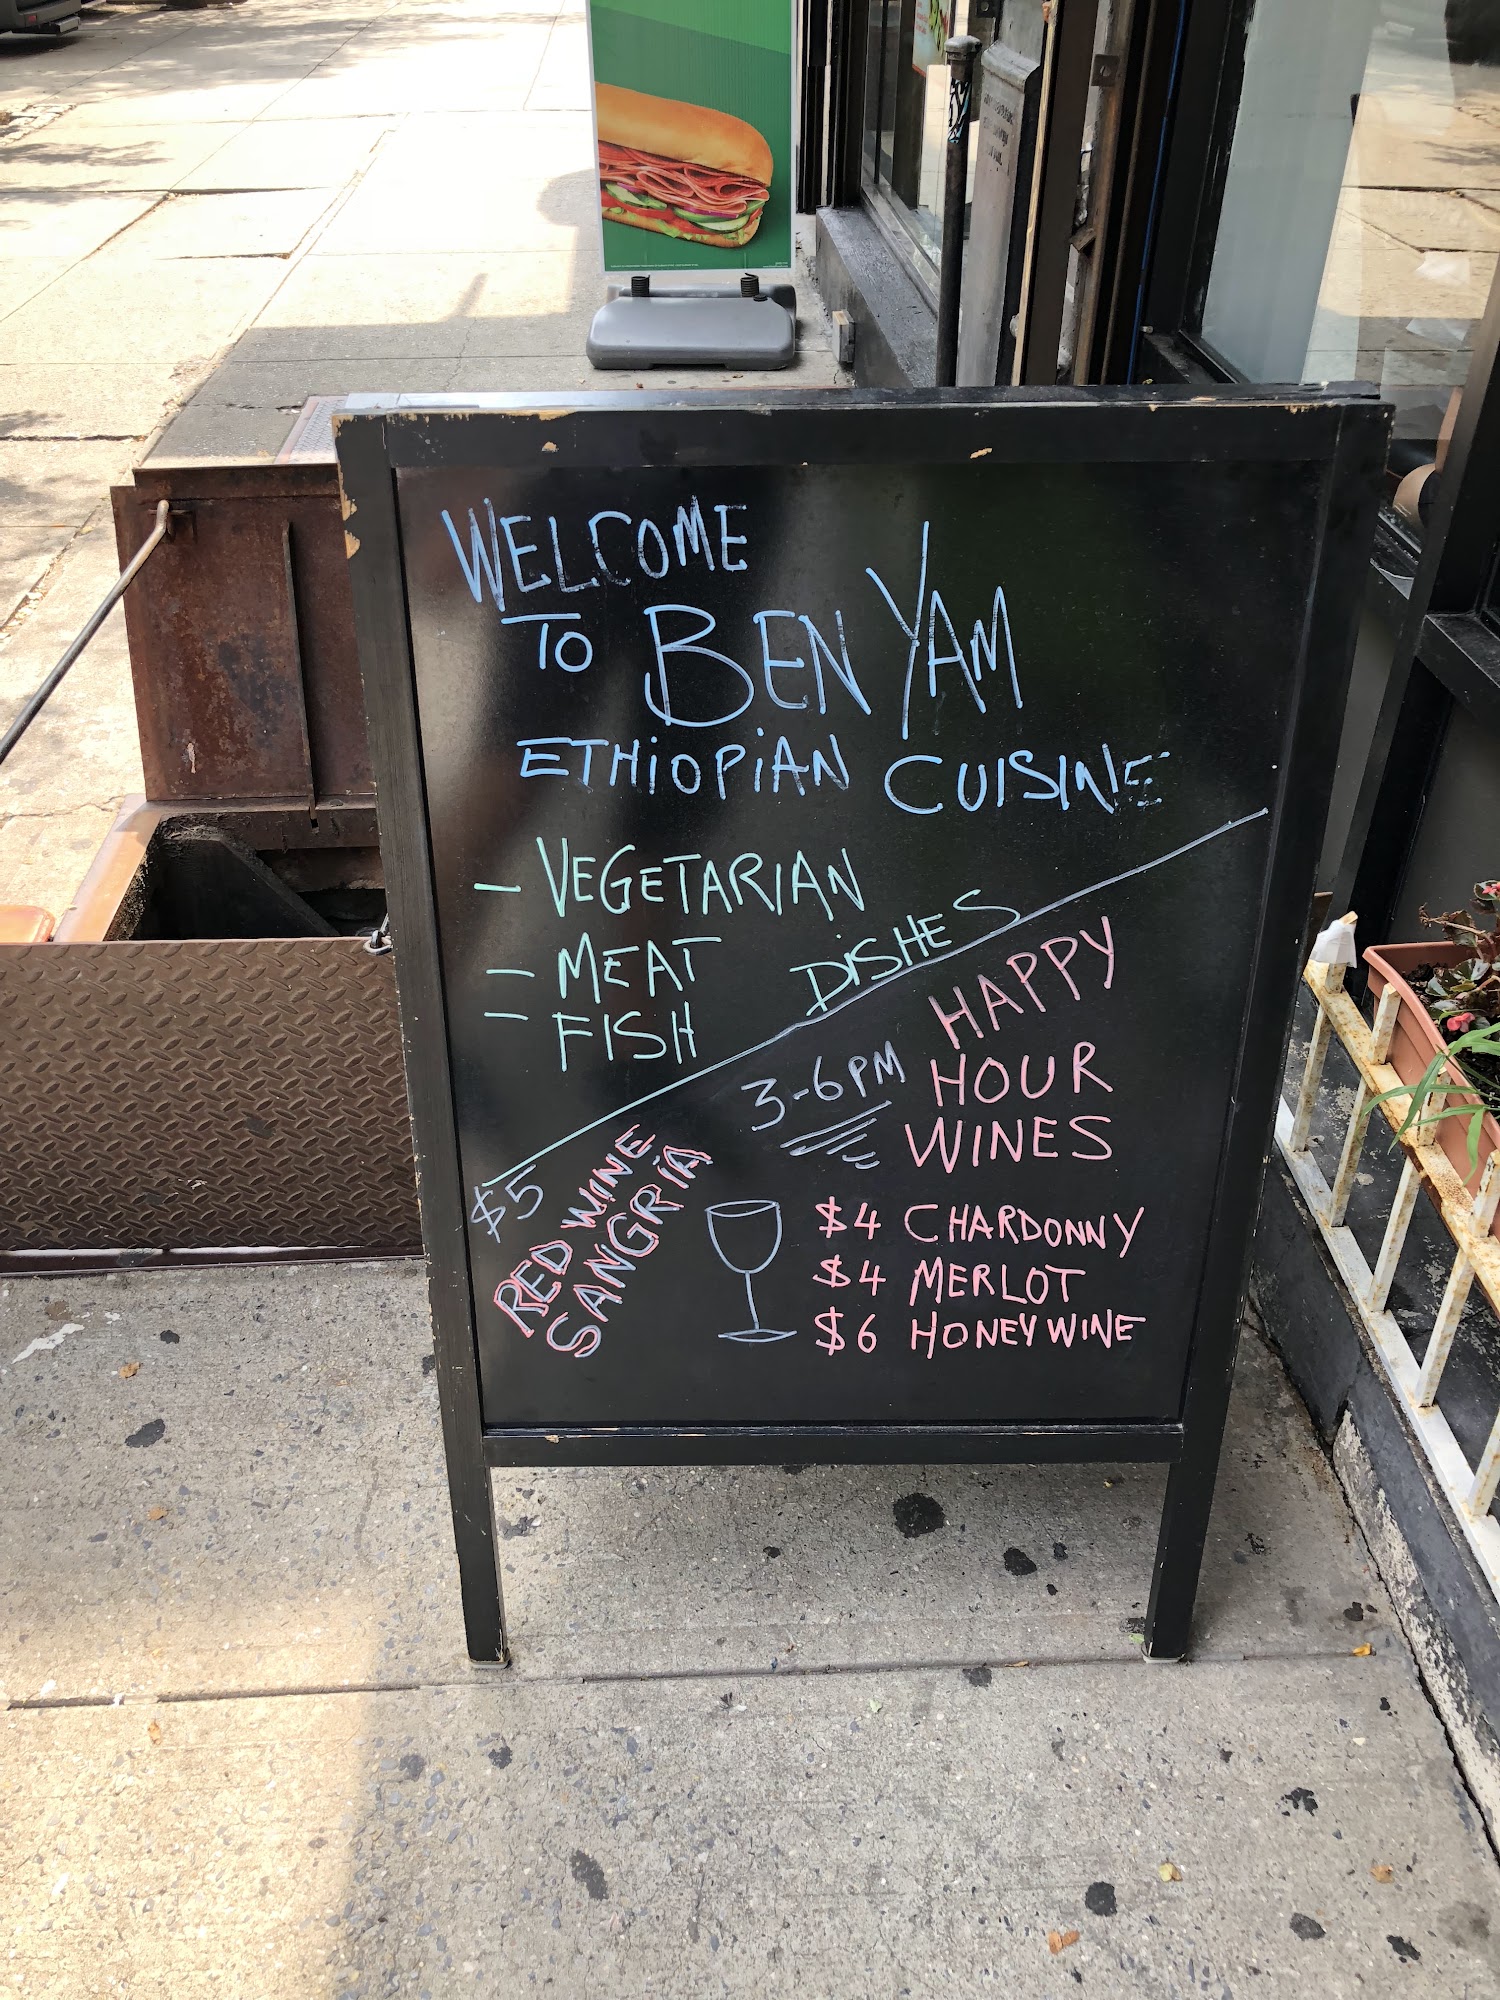 WELCOME
TO BENYAM
ETHIOPIAN CUISINE
- VEGETARIAN
- MEAT
- FISH
DISHES
HAPPY
HOUR
WINES
3-6PM
$5
RED WINE
SANGRIA
$4 CHARDONNY
$4 MERLOT
$6 HONEY WINE